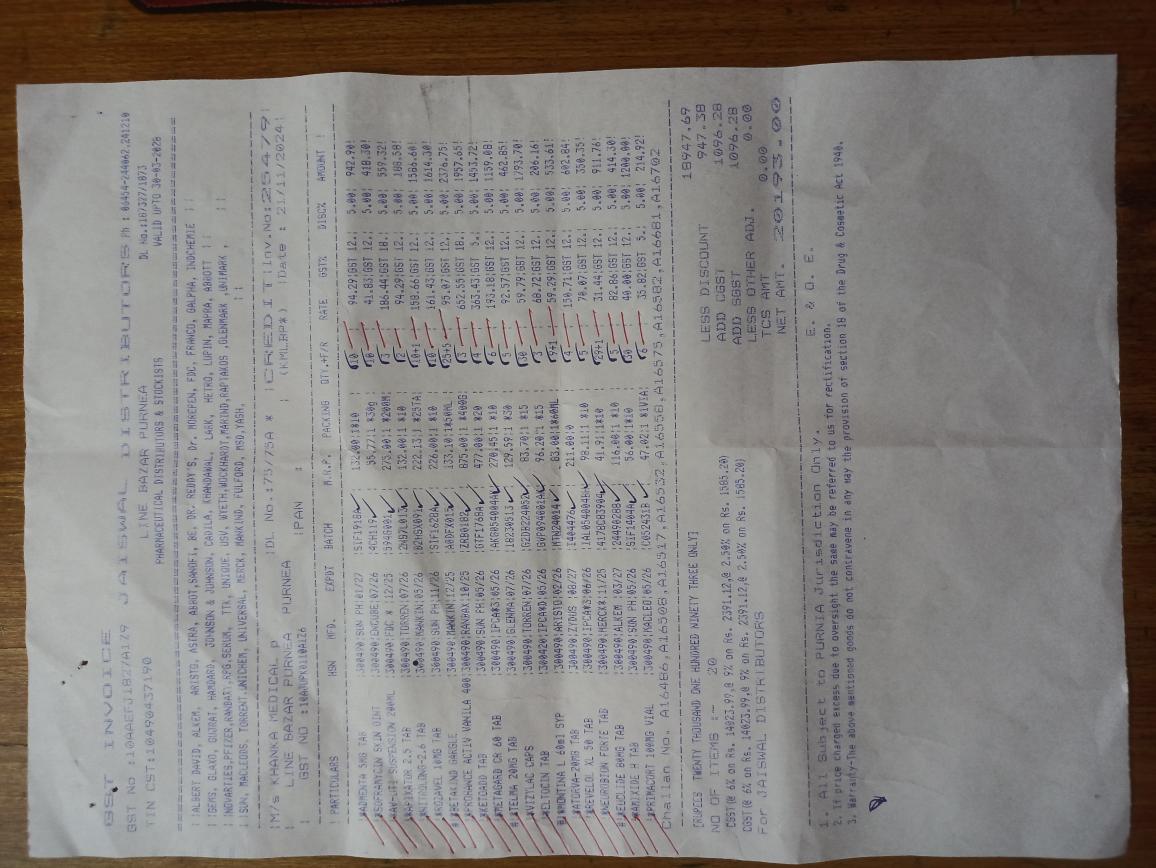 GST INVOICE
GST No :10AAEFJ1827A1Z9 JAISWAL DISTRIBUTORS Ph : 06454-244062,241210
TIN CST:10490437190 LINE BAZAR PURNEA DL No.:187377/1873
PHARMACEUTICAL DISTRIBUTORS & STOCKISTS VALID UPTO 30-03-2028
ALBERT DAVID, ALKEM, ARISTO, ASTRA, ABBOT,SANOFI, BE, DR. REDDY'S, Dr. MOREPEN, FDC, FRANCO, GALPHA, INDCHEMIE
GEMS, GLAXO, GUJRAT, HAMDARD, JOHNSON & JOHNSON, CADILA, KHANDAWAL, LARK, HETRO, LUPIN, MAPRA, ABBOTT
NOVARTIES,PFIZER,RANBAXY,RPG,SERUM, TTK, UNIQUE, USV, WYETH,WOCKHARDT,MARKIND,RAPTAKOS ,GLENMARK ,UNIMARK ,
SUN, MACLEODS, TORRENT,UNICHEM, UNIVERSAL, MERCK, MANKIND, FULFORD, MSD,YASH,
M/s KHANKA MEDICAL P DL No.:75/75A * CREDIT Inv.No:25479
LINE BAZAR PURNEA PURNEA (KMLBP*) Date : 21/11/2024
GST NO :10ANUPK0110A1Z6 PAN :
PARTICULARS HSN MFD. EXPDT BATCH M.R.P. PACKING QTY.+F/R RATE GST% DISC% AMOUNT
ADMENTA 5MG TAB 300490 SUN PH 01/27 SIF918A 132.00 1*10 10 94.29 GST 12. 5.00 942.90
SOFRAMYCIN SKIN OINT 300490 ENCUBE 07/26 4CH119 55.77 1 *30g 10 41.83 GST 12. 5.00 418.30
300490 FDC * 12/25 594B905 275.00 1 *200M 3 186.44 GST 18. 5.00 559.32
APIXATOR 2.5 TAB 300490 TORREN 07/26 2W57L013 132.00 1 *10 2 94.29 GST 12. 5.00 188.58
NITROLONG-2.6 TAB 300490 MANKIN 05/26 222.13 1 *25TA 10+1 158.66 GST 12. 5.00 1586.60
ROZAVEL 10MG TAB 300490 SUN PH 11/26 SIF1628A 226.00 1 *10 10 161.43 GST 12. 5.00 1614.30
BETAKIND GARGLE 300490 MANKIN 12/25 A8DFX015 133.10 1*50ML 25+5 95.07 GST 12. 5.00 2376.75
PROHANCE ACTIV VANILA 400 300490 RANBAX 10/25 ZRB0182 875.00 1 *400G 3 652.55 GST 18. 5.00 1957.65
KETOADD TAB 300490 SUN PH 05/26 GTF1768A 477.00 1 *20 4 363.43 GST 5. 5.00 1453.72
METAGARD CR 60 TAB 300490 IPCA*3 05/26 AKG054004A 270.45 1 *10 6 193.18 GST 12. 5.00 1159.08
TELMA 20MG TAB 300490 GLENMA 07/26 18230513 129.59 1 *30 5 92.57 GST 12. 5.00 462.85
VIZYLAC CAPS 300490 TORREN 07/26 GZDB224052 83.70 1 *15 30 59.79 GST 12. 5.00 1793.70
HELIOCIN TAB 300420 IPCA*D 05/26 GVP094001A 96.20 1 *15 3 68.72 GST 12. 5.00 206.16
MONTINA L 60ml SYP 300490 ARISTO 02/26 MTN24014 83.00 1*60ML 9+1 59.29 GST 12. 5.00 533.61
ATORVA-20MG TAB 300490 ZYDUS 08/27 I404476 211.00 0 4 150.71 GST 12. 5.00 602.84
REVELOL XL 50 TAB 300490 IPCA*3 06/26 IAL054004B 98.11 1 *10 5 70.07 GST 12. 5.00 350.35
NEUROBION FORTE TAB 300490 MERCK* 11/25 417BC83904 41.91 1*10 29+1 31.44 GST 12. 5.00 911.76
EUCLIDE 80MG TAB 300490 ALKEM 03/27 24490288 116.00 1 *10 5 82.86 GST 12. 5.00 414.30
AMIXIDE H TAB 300490 SUN PH 05/26 SIF1404A 56.00 1*10 30 40.00 GST 12. 5.00 1200.00
PRIMACORT 100MG VIAL 300490 MACLEO 05/26 C052431B 47.02 1 *1VIA 6 35.82 GST 5. 5.00 214.92
Challan No. A16486,A16508,A16517,A16532,A16558,A16575,A16582,A16681,A16702
18947.69
[RUPEES TWENTY THOUSAND ONE HUNDRED NINETY THREE ONLY] LESS DISCOUNT 947.38
NO OF ITEMS :- 20 ADD CGST 1096.28
CGST(@ 6% on Rs. 14023.99,@ 9% on Rs. 2391.12,@ 2.50% on Rs. 1585.20) ADD SGST 1096.28
CGST(@ 6% on Rs. 14023.99,@ 9% on Rs. 2391.12,@ 2.50% on Rs. 1585.20) LESS OTHER ADJ. 0.00
For JAISWAL DISTRIBUTORS TCS AMT 0.00
NET AMT. 20193.00
E. & O. E.
1. All Subject to PURNIA Jurisdiction Only.
2. If price charged excess due to oversight the same may be referred to us for rectification.
3. Warranty-The above mentioned goods do not contravene in any may the provision of section 18 of the Drug & Cosmetic Act 1940.